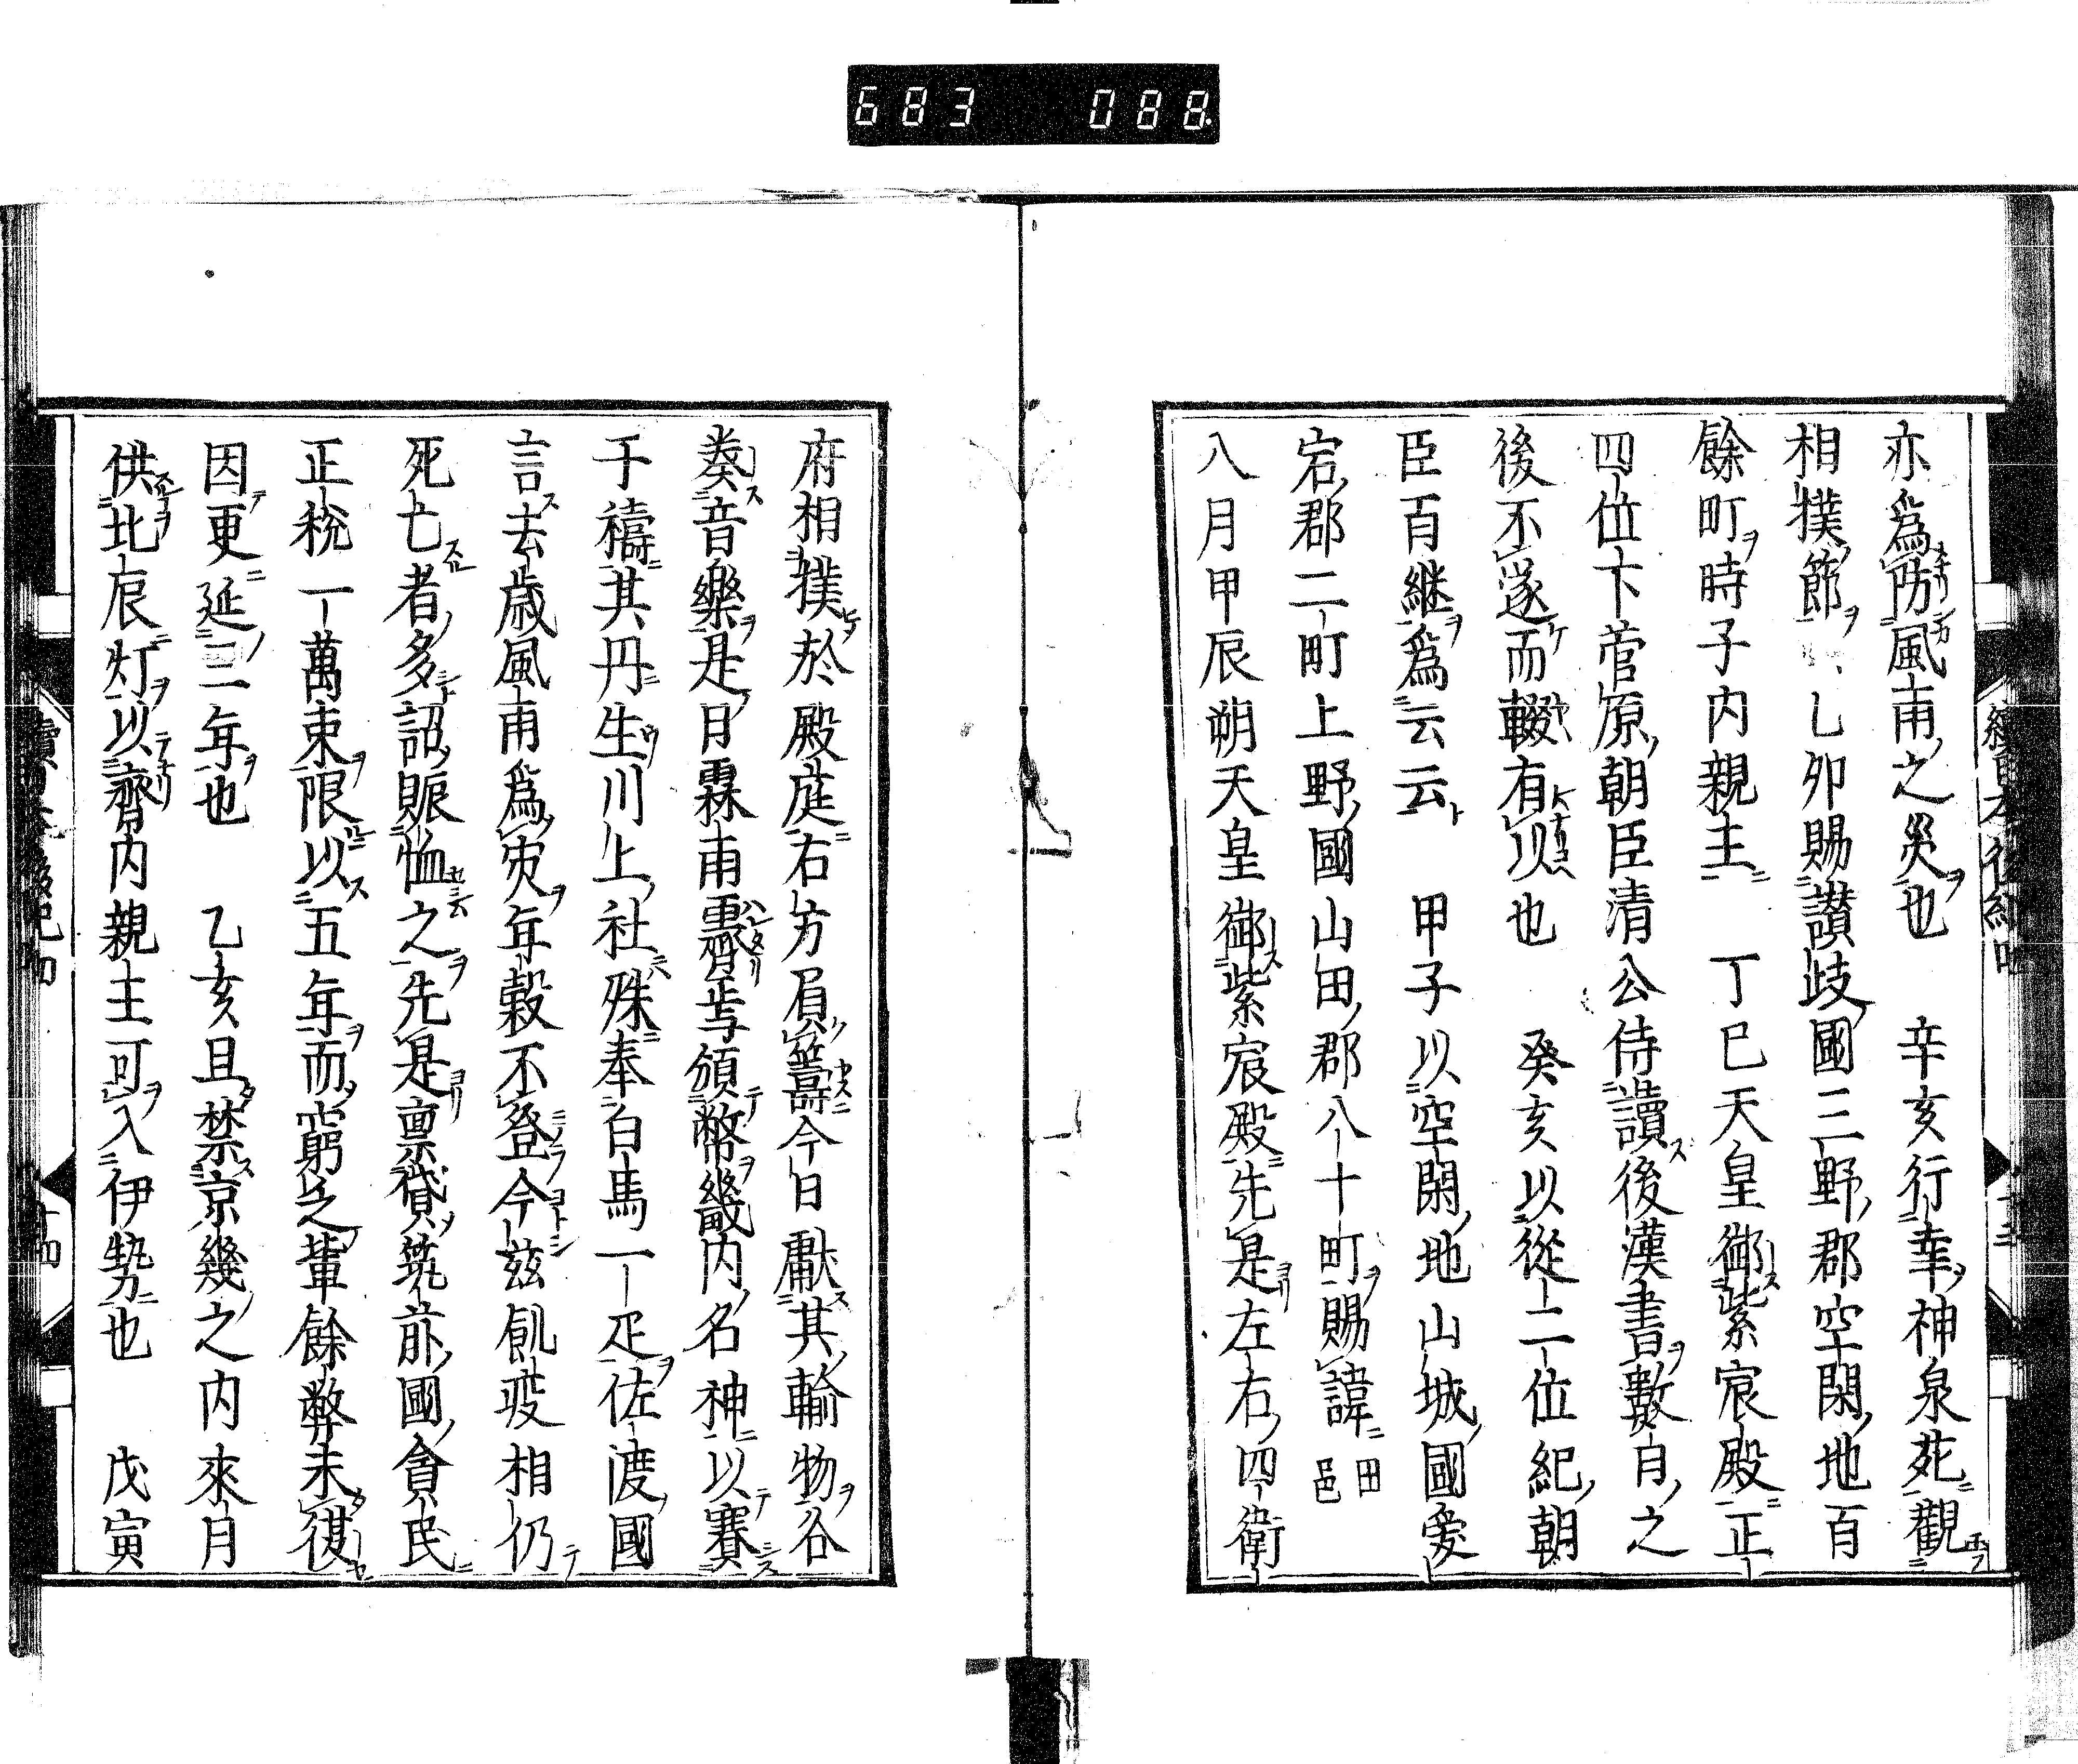 683 088
亦爲防風雨之災也　辛亥行幸神泉苑觀
相撲節　乙卯賜讃岐國三野郡空閑地百
餘町時子内親王　丁巳天皇御紫宸殿正
四位下菅原朝臣清公侍讀後漢書數自之
後不遂而輟有以也　癸亥以從二位紀朝
臣百継爲云云　甲子以空閑地山城國愛
宕郡二町上野國山田郡八十町賜諱田邑
八月甲辰朔天皇御紫宸殿先是左右四衛
府相撲於殿庭右方負籌今日獻其輸物谷
奏音樂是月霖雨霽焉頒幣畿内名神以賽
于禱其丹生川上社殊奉白馬一疋佐渡國
言去歳風雨爲灾年穀不登今茲飢疫相仍
死亡者多詔賑恤之先是禀貸筑前國貪民
正税一萬束限以五年而窮乏輩餘弊未復
因更延三年也　乙亥且禁京幾之内來月
供北辰灯以齋内親王可入伊勢也　戊寅